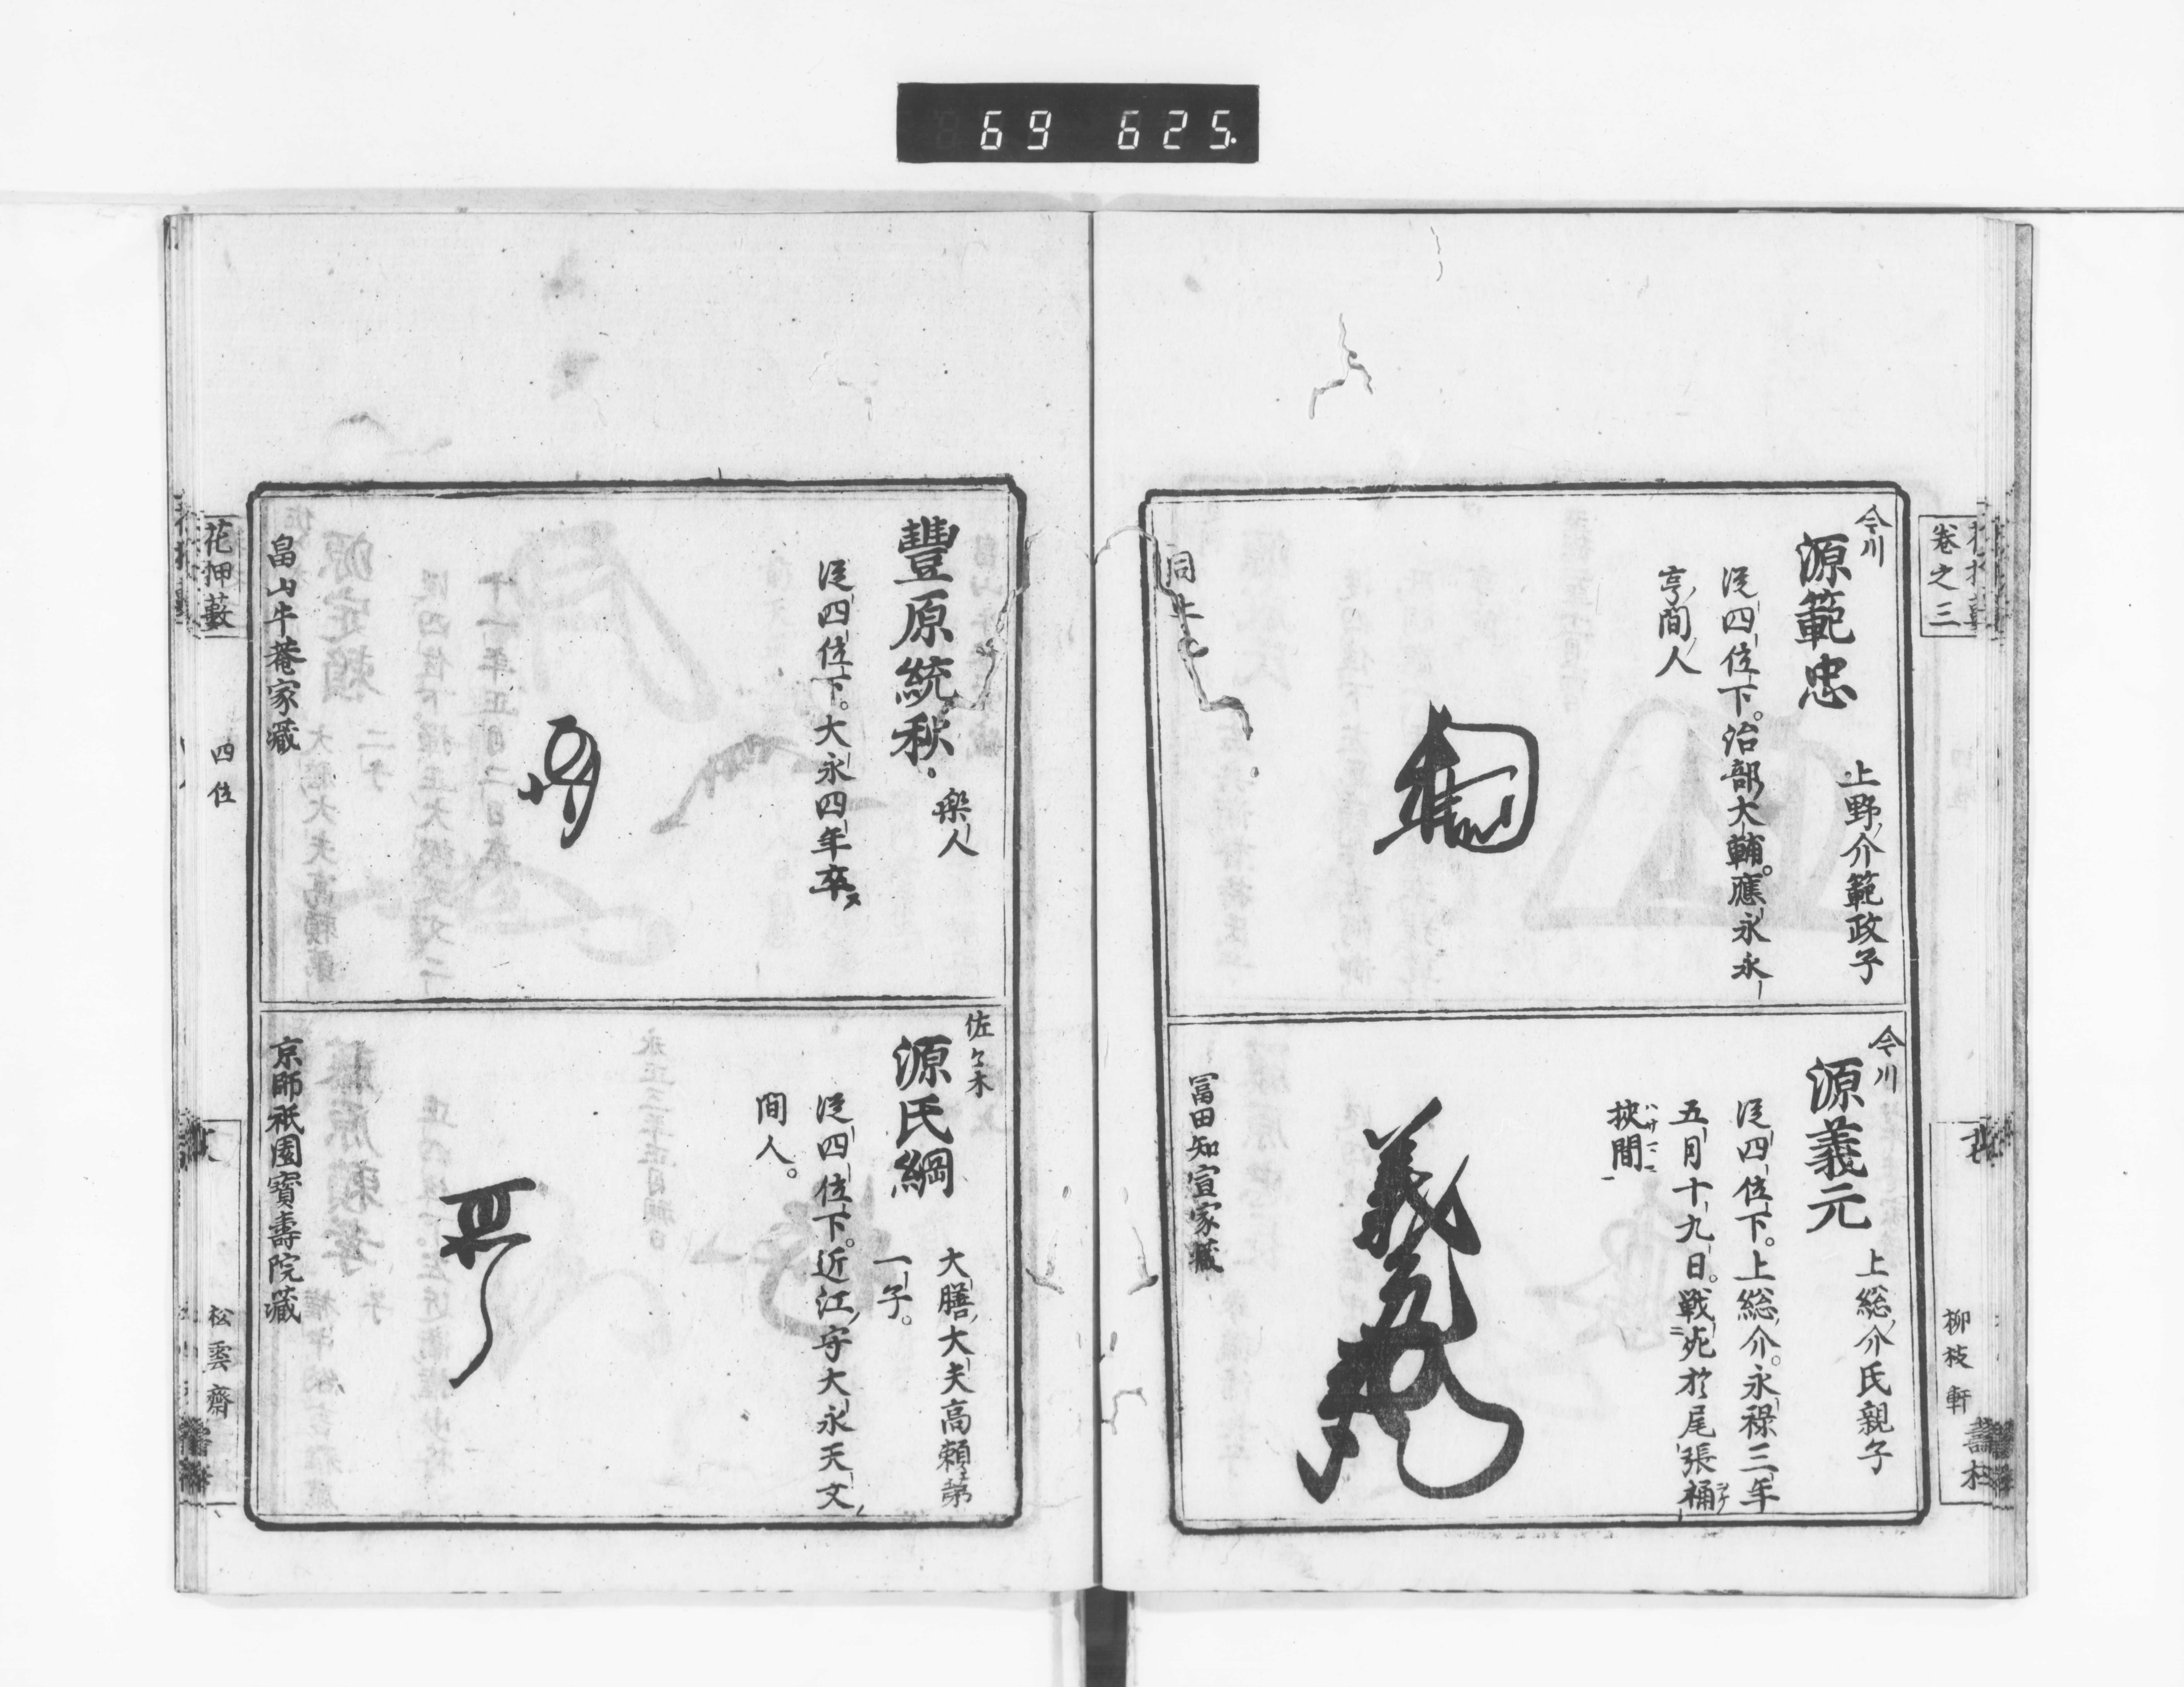 69 625.
卷之三
今川
源範忠
上野介範政子
從四位下。治部大輔。應永永
享間人
同上
今川
源義元
上総介氏親子
從四位下。上総介。永禄三年
五月十九日。戦死於尾張桶
挾間
義元
冨田知宣家藏
柳枝軒
豐原統秋。
樂人
從四位下。大永四年卒
畠山牛菴家藏
佐々木
源氏綱
大膳大夫高頼第
一子。
從四位下。近江守大永天文
間人。
京師祇園寳壽院藏
花押藪
四位
松雲齋